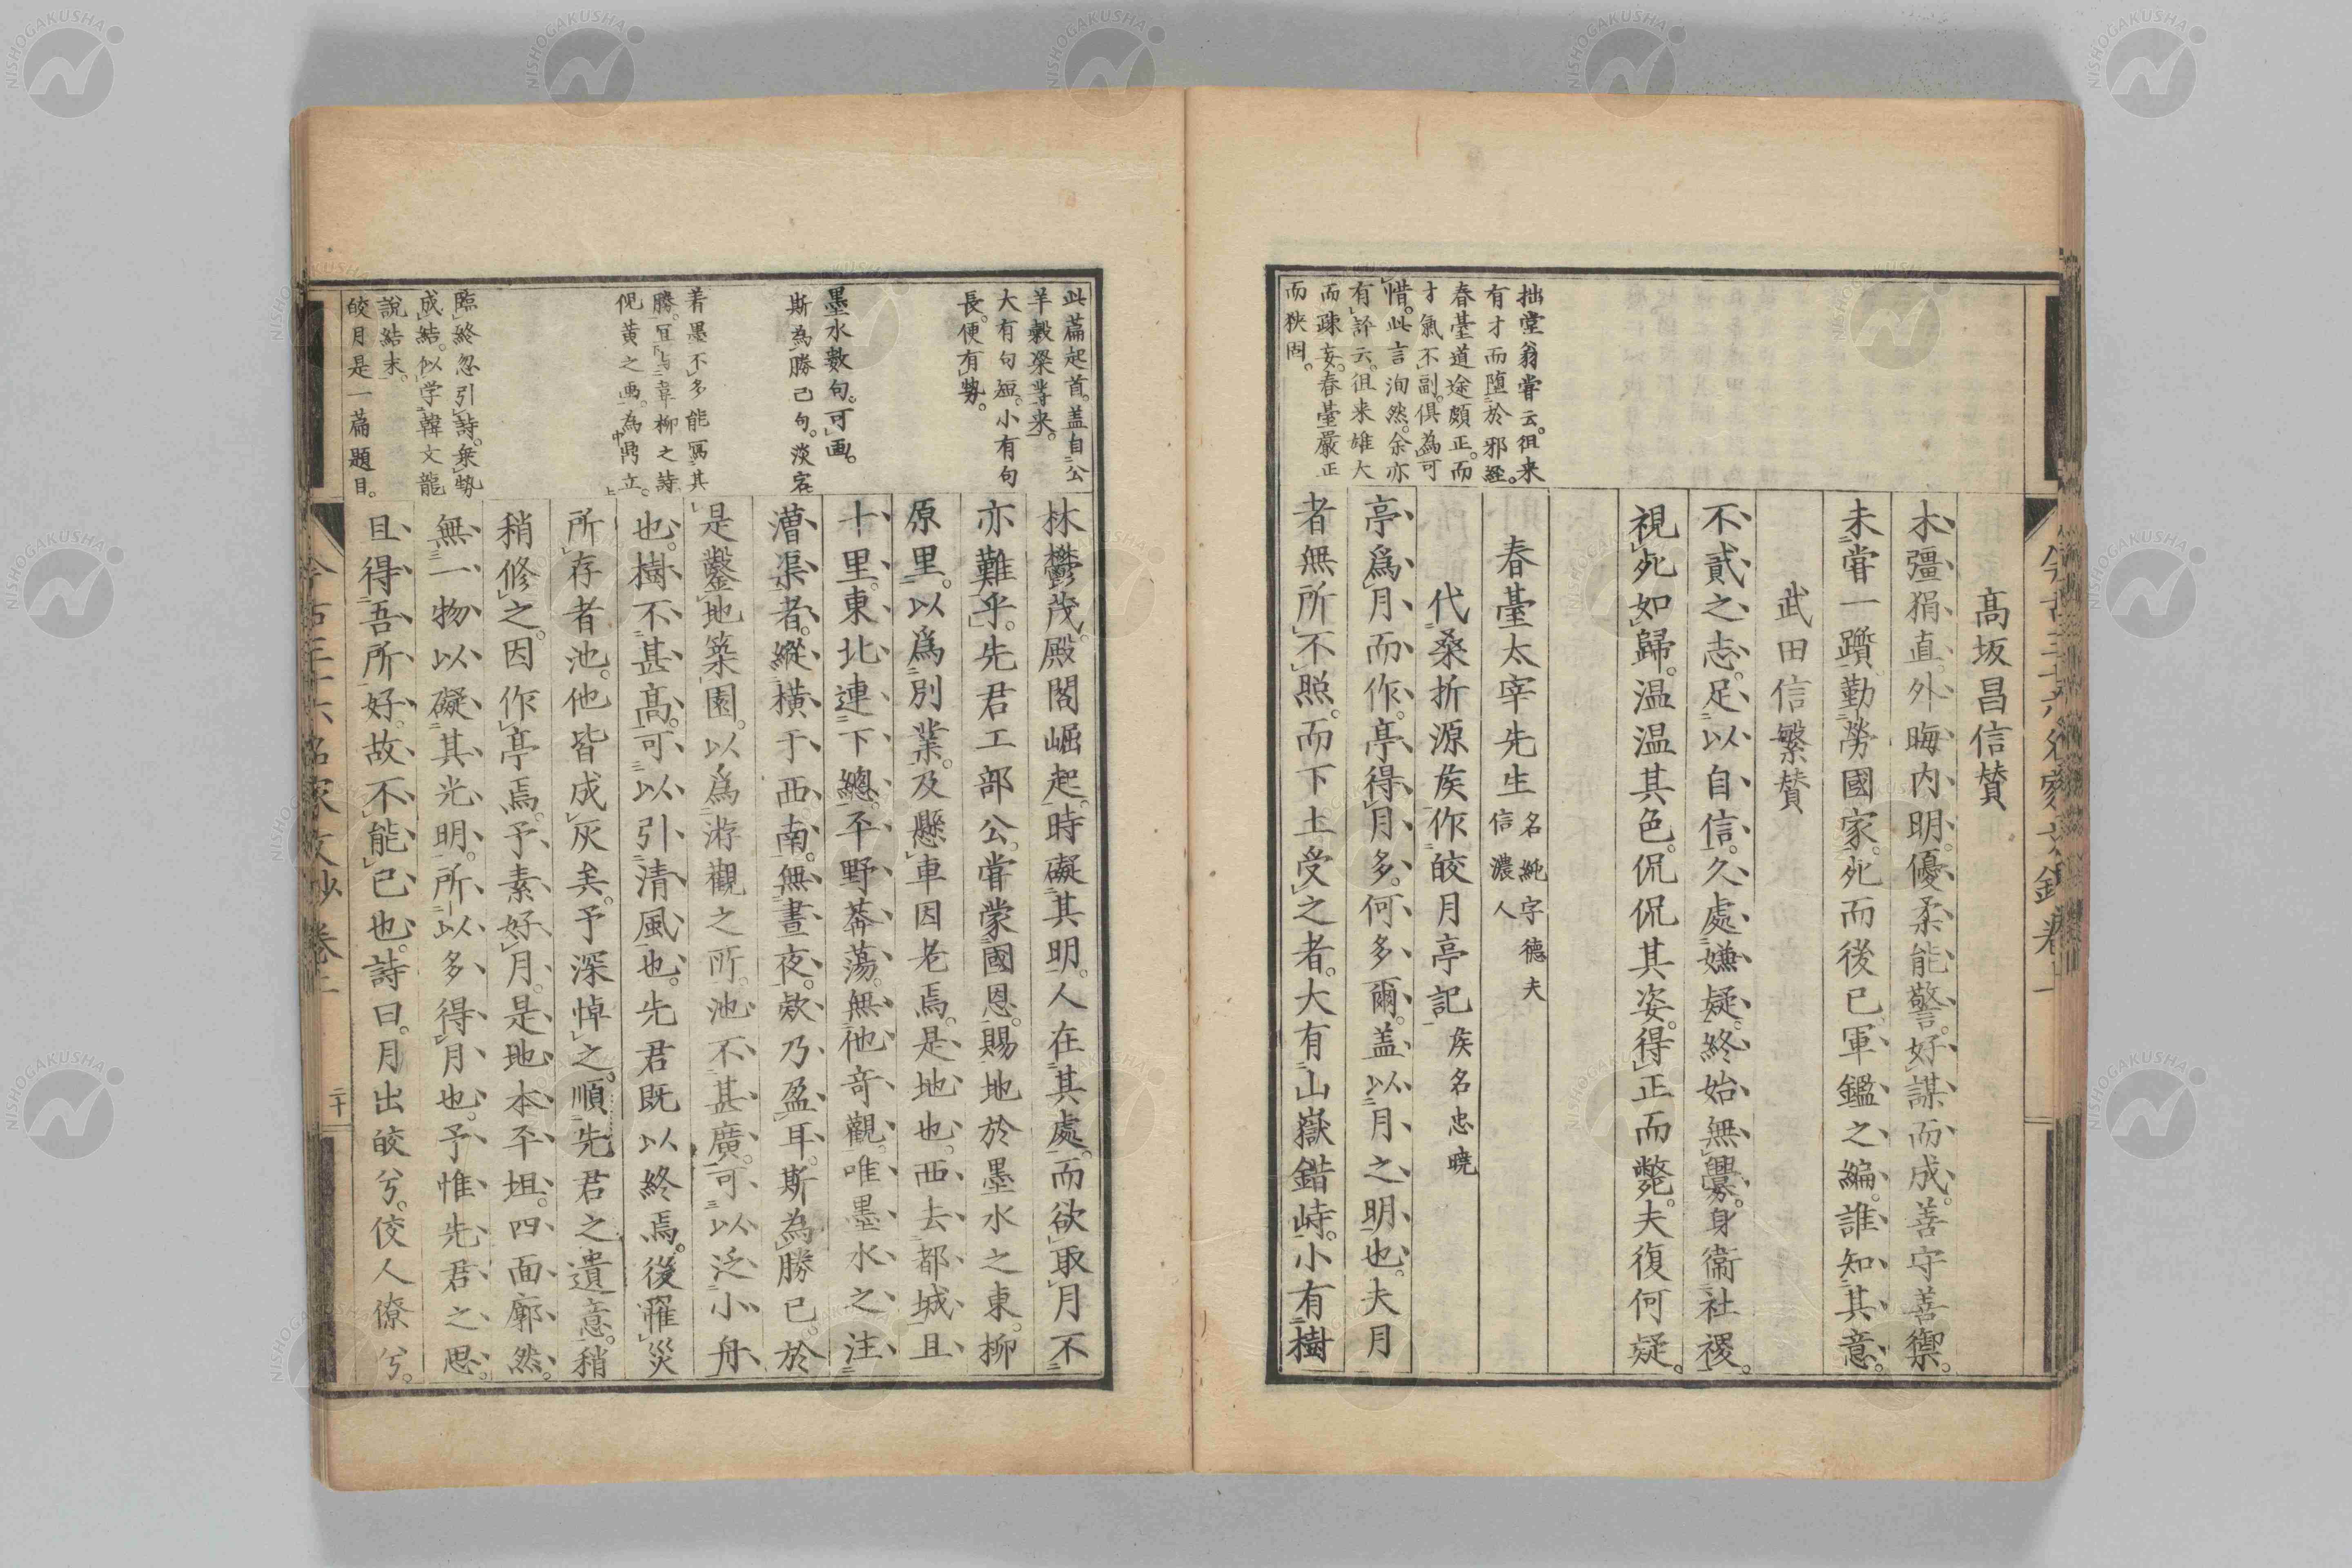 高坂昌信贊
木彊狷直。外晦内明。優柔能警。好謀而成。善守善禦。
未嘗一躓。勤勞國家。死而後已。軍鑑之編。誰知其意。
武田信繁贊
不貳之志。足以自信。久處嫌疑。終始無釁。身衞社稷。
視死如歸。温温其色。侃侃其姿。得正而斃。夫復何疑。
春臺太宰先生 名純字德夫
信濃人
代桑折源侯作皎月亭記 侯名忠曉
亭爲月而作。亭得月多。何多爾。蓋以月之明也。夫月
者無所不照。而下土受之者。大有山嶽錯峙。小有樹
拙堂翁嘗云。徂来
有才而堕於邪経。
春臺道途頗正。而
才氣不副。俱為可
惜。此言洵然。余亦
有評云。徂来雄大
而疎妄。春臺嚴正
而狭固。
林鬱茂。殿閣崛起。時礙其明。人在其處。而欲取月不
亦難乎。先君工部公。嘗蒙國恩。賜地於墨水之東。柳
原里。以爲別業。及懸車因老焉。是地也。西去都城且
十里。東北連下總。平野莽蕩。無他奇觀。唯墨水之注
漕渠者。縱橫于西南。無晝夜。欸乃盈耳。斯為勝已於
是鑿地築園。以爲游觀之所。池不甚廣。可以泛小舟
也。樹不甚高。可以引清風也。先君既以終焉。後罹災
所存者池。他皆成灰矣。予深悼之。順先君之遺意。稍
稍修之。因作亭焉。予素好月。是地本平坦。四面廓然。
無一物以礙其光明。所以多得月也。予惟先君之思。
且得吾所好。故不能已也。詩曰。月出皎兮。佼人僚兮。
此篇起首。蓋自公
羊穀梁等来。
大有句短。小有句
長。便有勢。
墨水數句。可画。
斯為勝已句。淡宕
着墨不多能冩其
勝。冝与韋柳之詩
倪黄之画。為鼎立。
臨終忽引詩。乗勢
成結。似学韓文龍
說結末。
皎月是一篇題目。
二十